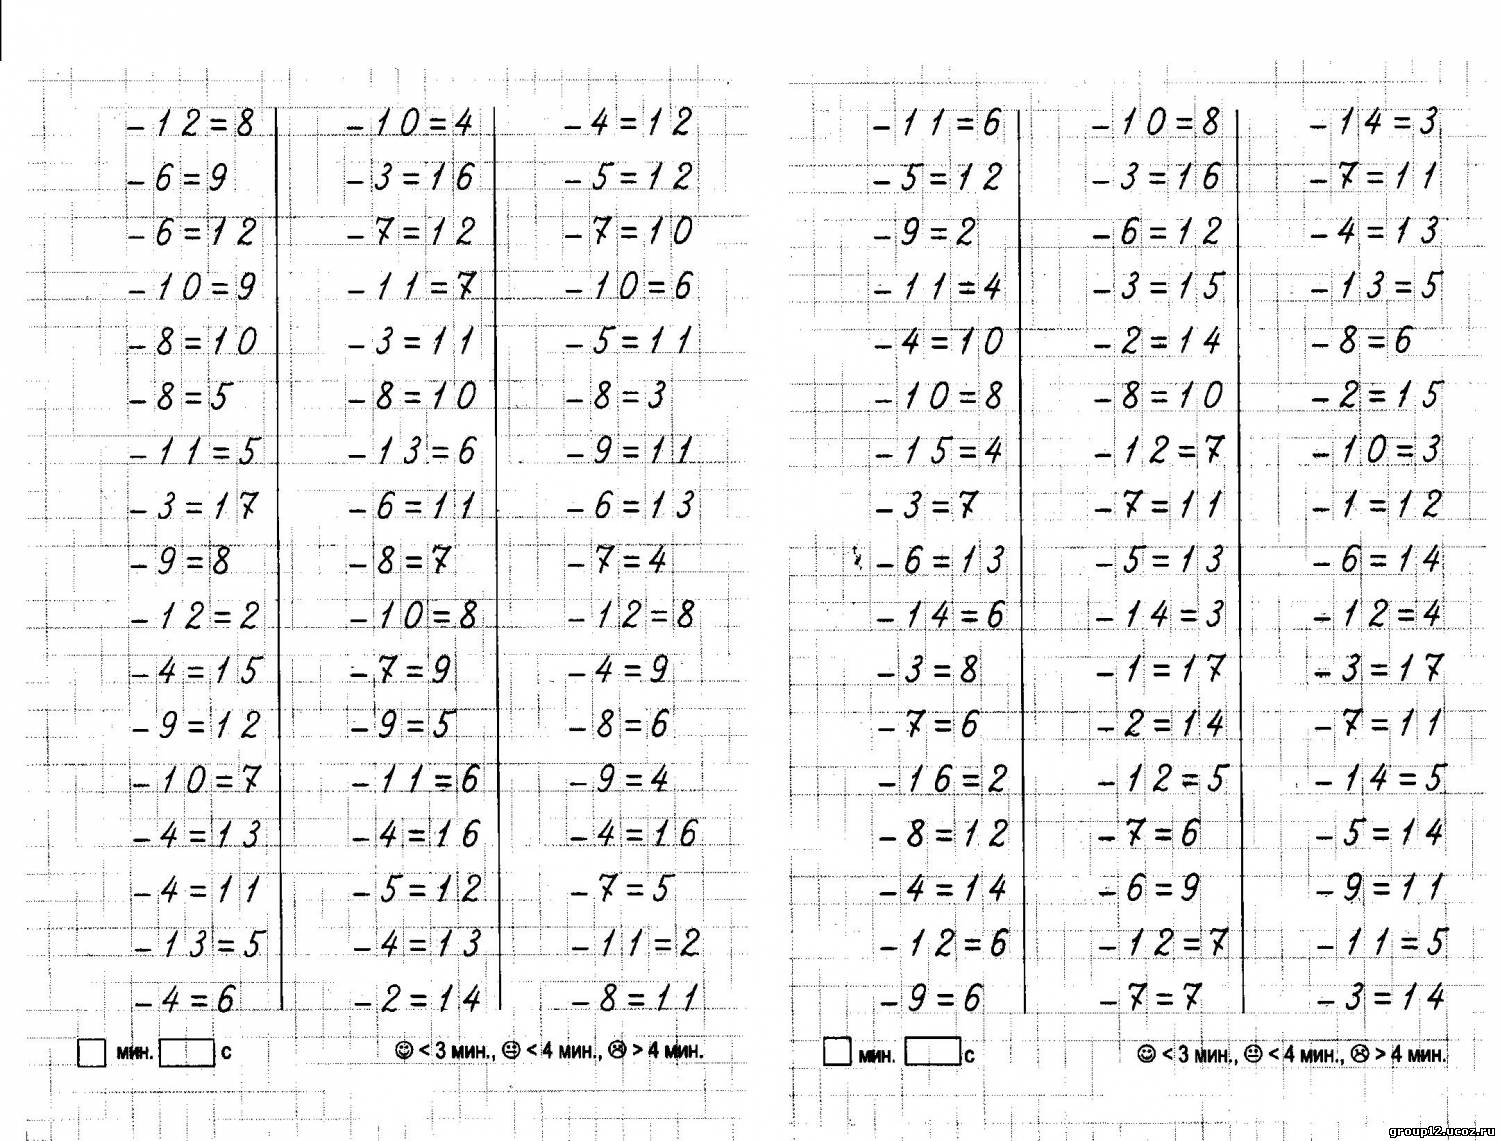 -12=8 -10=4 -4=12
-6=9 -3=16 -5=12
-6=12 -7=12 -7=10
-10=9 -11=7 -10=6
-8=10 -3=11 -5=11
-8=5 -8=10 -8=3
-11=5 -13=6 -9=11
-3=17 -6=11 -6=13
-9=8 -8=7 -7=4
-12=2 -10=8 -12=8
-4=15 -7=9 -4=9
-9=12 -9=5 -8=6
-10=7 -11=6 -9=4
-4=13 -4=16 -4=16
-4=11 -5=12 -7=5
-13=5 -4=13 -11=2
-4=6 -2=14 -8=11
мин. с <3 мин., <4 мин., >4 мин.
-11=6 -10=8 -14=3
-5=12 -3=16 -7=11
-9=2 -6=12 -4=13
-11=4 -3=15 -13=5
-4=10 -2=14 -8=6
-10=8 -8=10 -2=15
-15=4 -12=7 -10=3
-3=7 -7=11 -1=12
-6=13 -5=13 -6=14
-14=6 -14=3 -12=4
-3=8 -1=17 -3=17
-7=6 -2=14 -7=11
-16=2 -12=5 -14=5
-8=12 -7=6 -5=14
-4=14 -6=9 -9=11
-12=6 -12=7 -11=5
-9=6 -7=7 -3=14
мин. с <3 мин., <4 мин., >4 мин.
group12.ucoz.ru